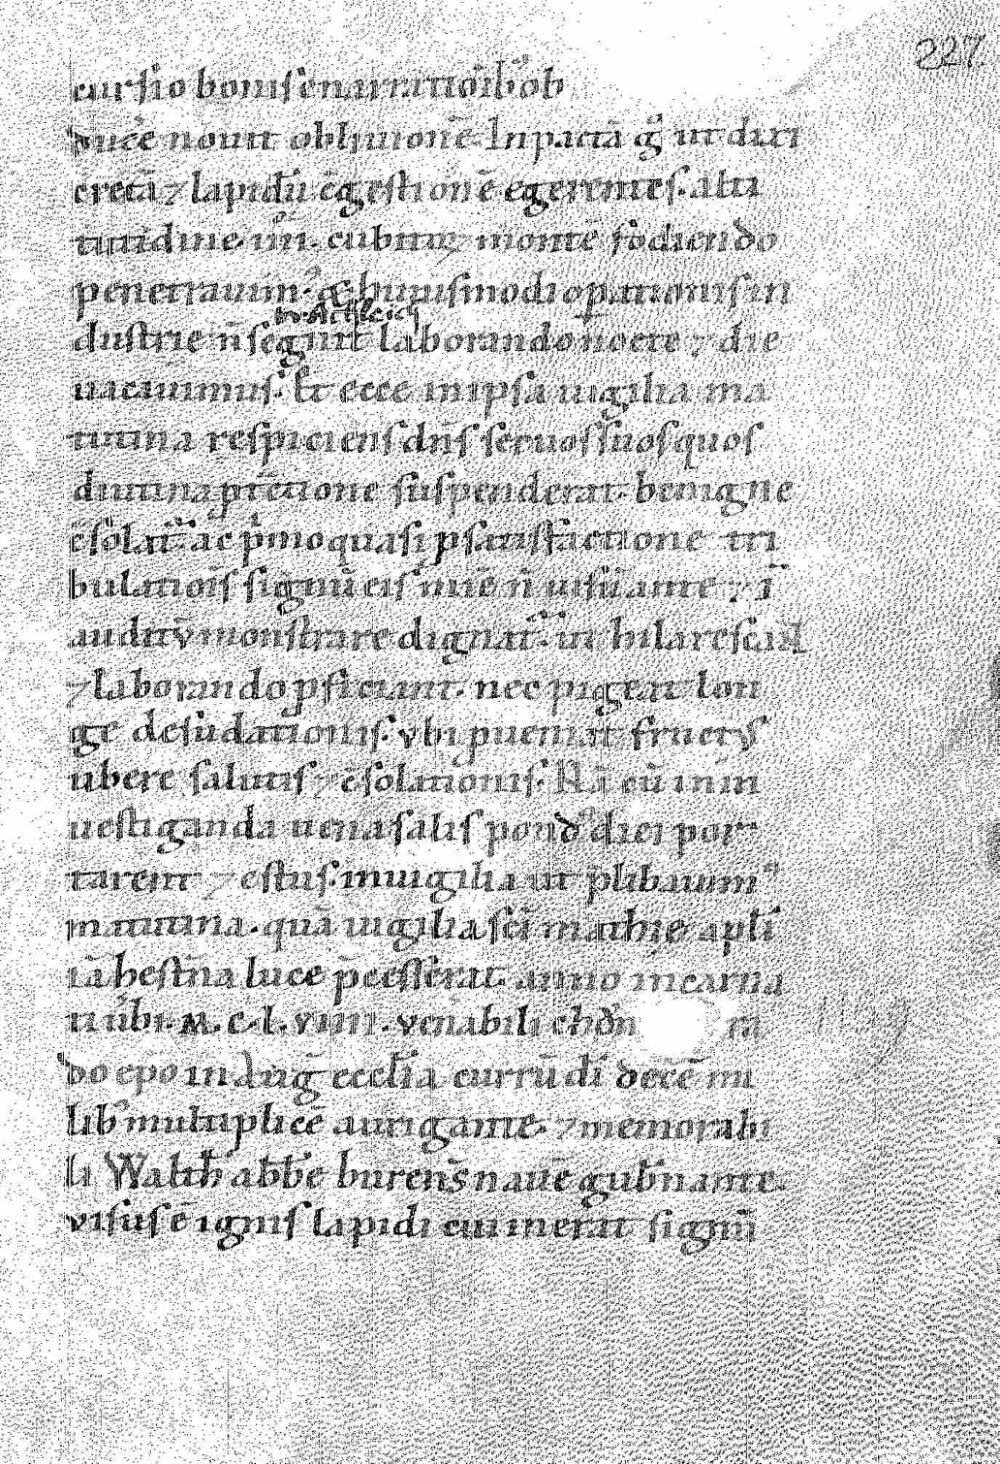 227
cursio bonis enarrationib; ob
ducere nouit obliuionē. In pactā g° ut dixi
cretā ⁊ lapidū c̄gestionē egerentes. alti
tudine. cubitū ⁊ montē fodiendo
penetrauim⁹. huiusmodi oꝑationis in
dustrie n̄ segnit̄ laborando nocte ⁊ die
uacauimus. Et ecce in ipsa uigilia ma
tutina respiciens dn̄s seruos suos quos
diutina suspenderat. benigne
c̄solat᷑. ac pͥmo quasi ꝑ satisfactione tri
bulatiois̄ signū eis mīe n̄ uisū ante ⁊ ī
auditū monstrare dignat᷑. ut hilarescant
⁊ laborando ꝓficiant. nec pigeat lon
ge desudationis. vbi ꝑueniat̄ fructꝰ
ubere salutis ⁊ c̄solationis. Nā cū in in
uestiganda uena salis pond⁹ diei por
tarent ⁊ estus. in uigilia ut p̄libauim⁹
matutina. quā uigilia sc̄i mathie apl̄i
iā hest̄na luce p̄cesserat. anno incarna
ti ūbi. M. c. l. viiii. venābili
do ep̄o in auḡ eccl̄ia currū dī decē mi
lib⁹ multiplicē aurigante. ⁊ memorabi
li Walth̄ abb̄e burens̄ nauē gub̄nante.
visus ē ignis lapidi cui inerat signū